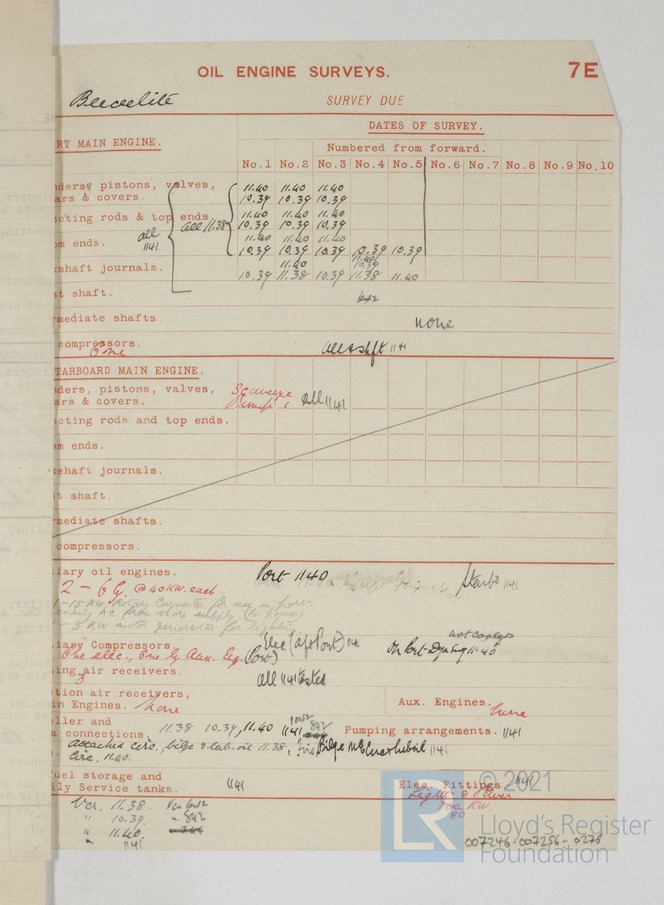 OIL ENGINE SURVEYS.
7E
SURVEY DUE
DATES OF SURVEY.
RT MAIN ENGINE.
Numbered from forward.
No.1 No.2 No.3 No.4 No.5 No.6 No.7 No.8 No.9 No.10
nders, pistons, valves, 11.40 11.40 11.40
ars & covers. 10.39 10.39 10.39
cting rods & top ends. all 11.38 11.40 11.40 11.40
10.39 10.39 10.39
all 11.40 11.40 11.40
om ends. 1141 10.39 10.39 10.39 10.39 10.39
11.40
shaft journals. 10.39 11.38 10.39 11.38 11.40
st shaft. 642
mediate shafts. none
compressors. 1141
One
TARBOARD MAIN ENGINE.
nders, pistons, valves, Scavenge
ars & covers. Pump 1 all 1141
cting rods and top ends.
om ends.
shaft journals.
st shaft.
mediate shafts.
compressors.
iary oil engines. Port 1140 Starbd 1141
2 - 6 Cy. @ 40KW. each
- 15 KW. Rotary
AC from shore supply
- 5 KW motor generator for lights
iary Compressors. Elec (aft Port) 1141
One elec., One by Aux. Eng. (Port)
ing air receivers. all 1141 tested
3
tion air receivers,
in Engines. None
Aux. Engines. none
ller and
m connections. 11.38 10.39, 11.40 1141 1042 842
Pumping arrangements. 1141
attached circ, bilge & lub-oil 11.38, Fire, Bilge 1141
Circ. 11.40.
uel storage and
ily Service tanks. 1141
Elec. Fittings 1141
Light & Power
KW.
80
Ver. 11.38 Ver 642
" 10.39 " 842
" 11.40
" 1141
LR
© 2021
Lloyd's Register
Foundation
007246-007256-0278